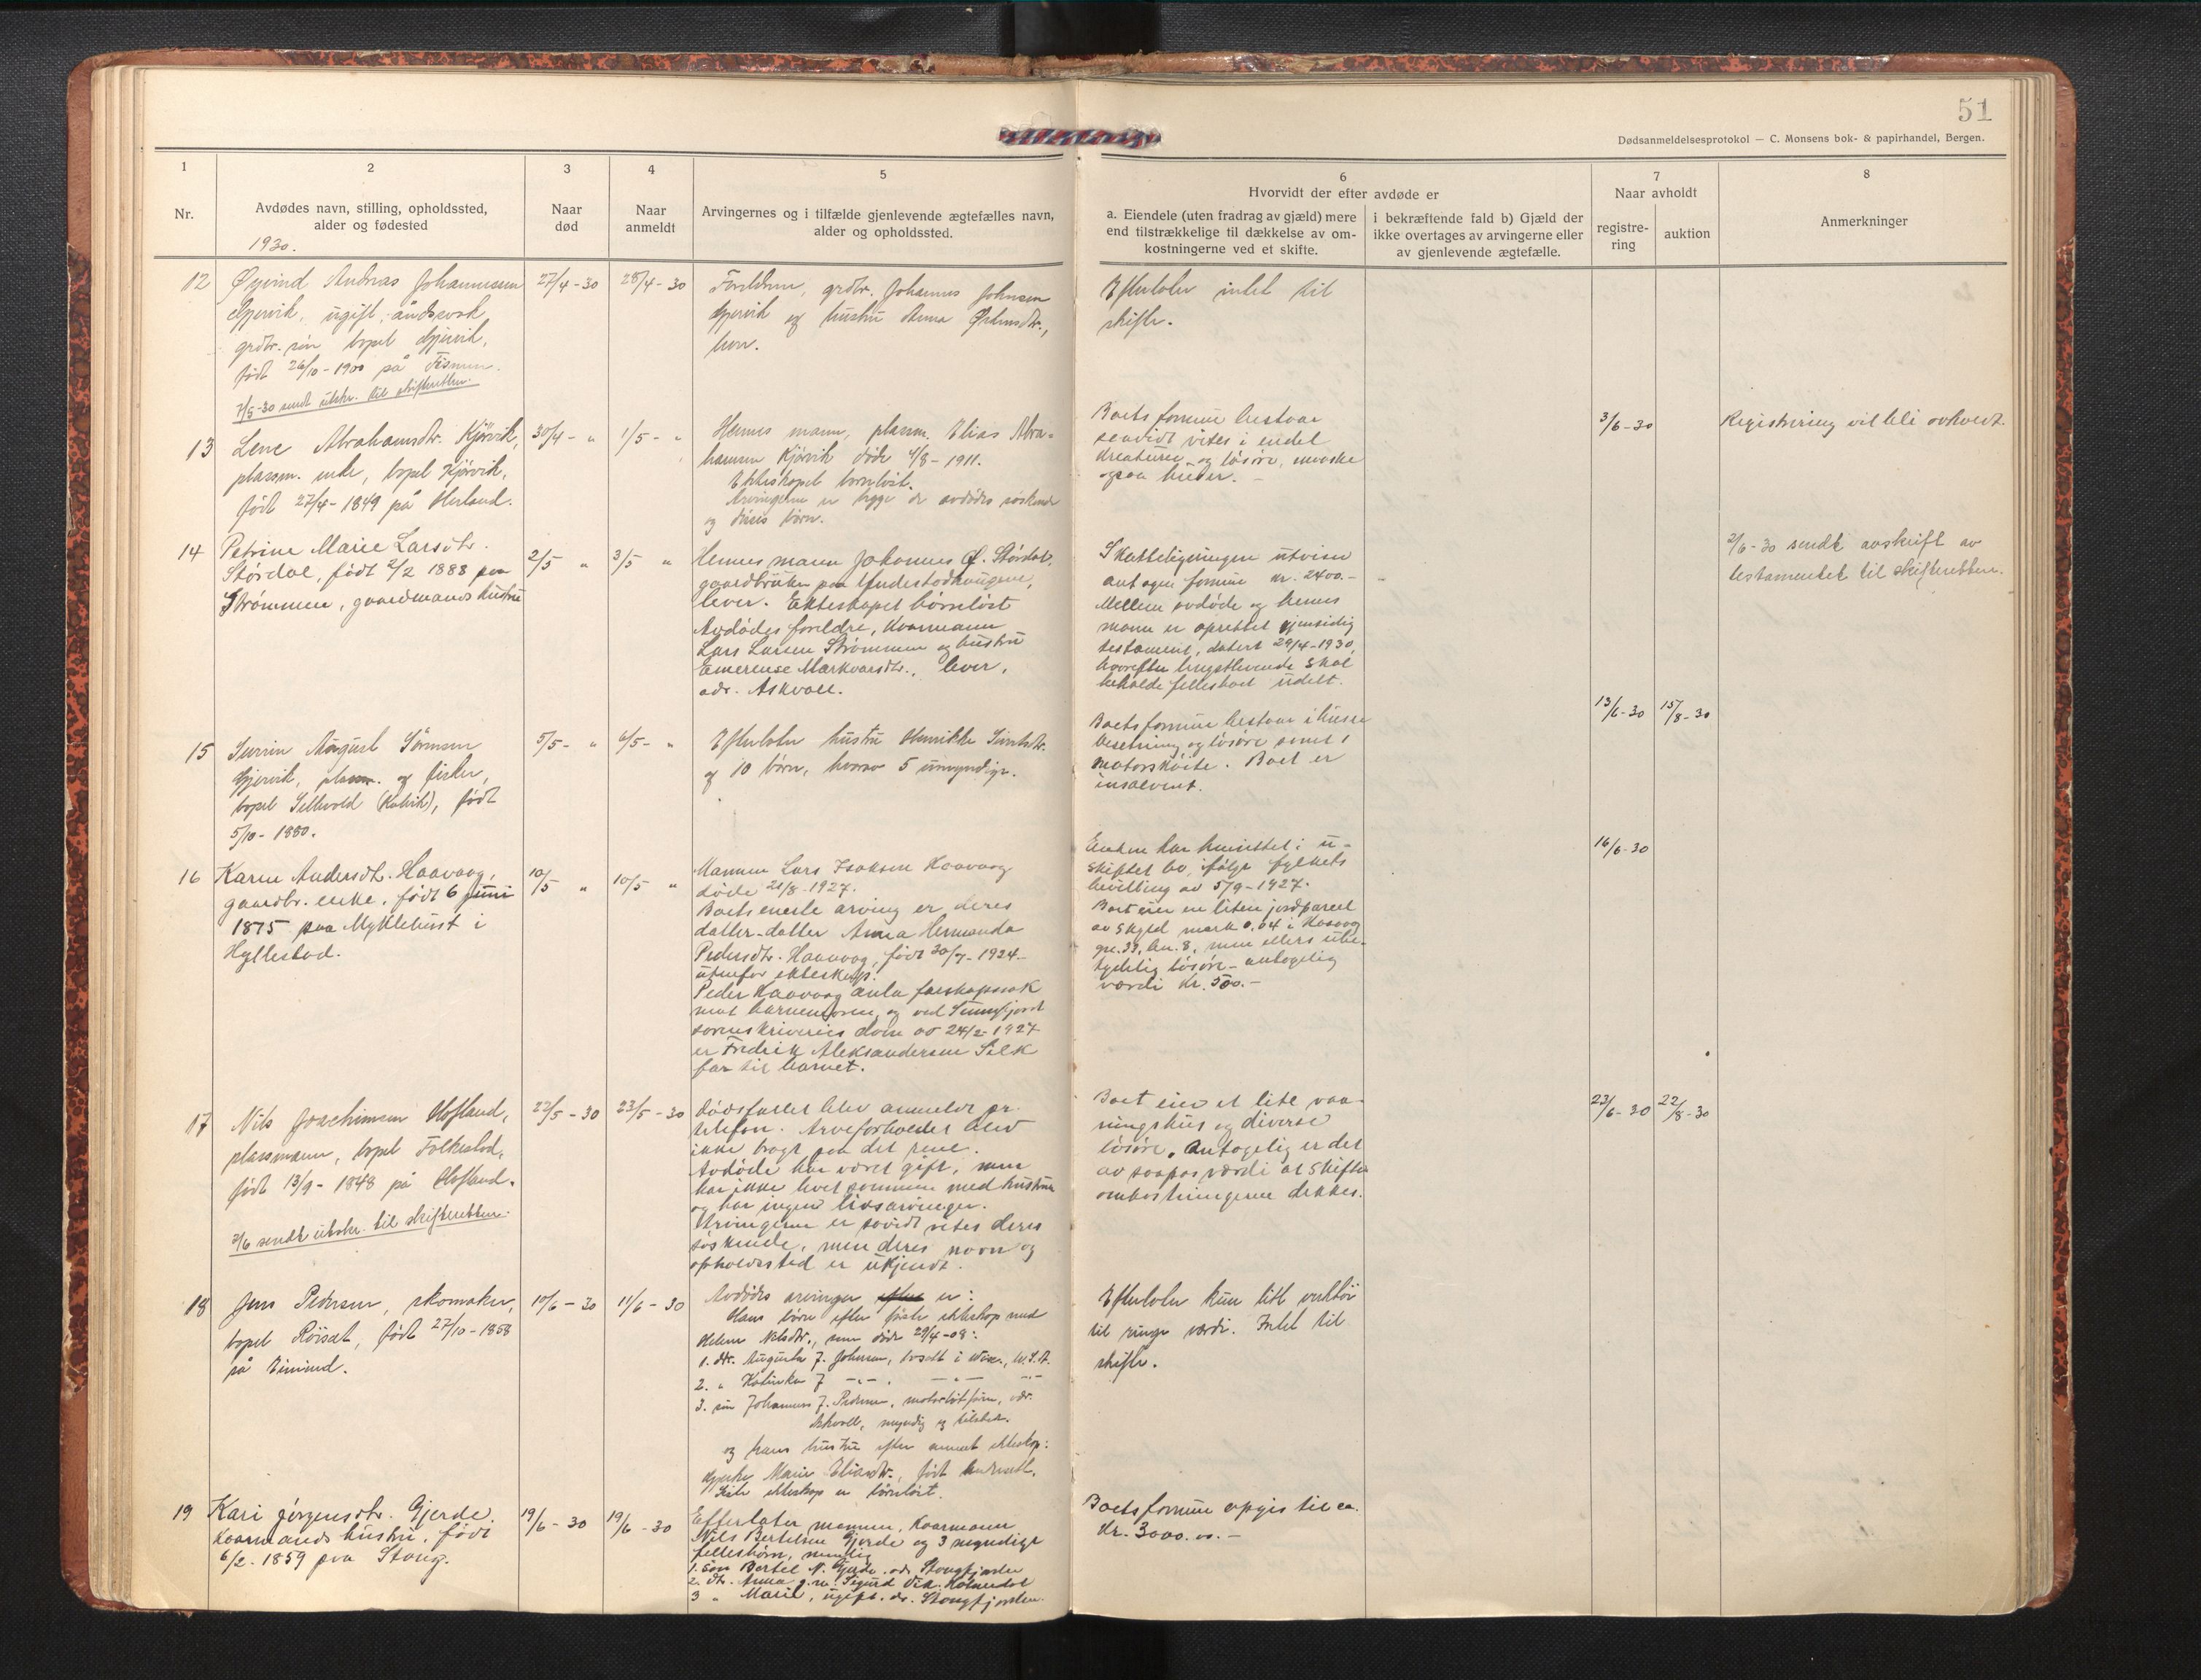 51
Dødsanmeldelsesprotokol — C. Monsens bok- & papirhandel, Bergen.
1
Nr.
2
Avdødes navn, stilling, opholdssted,
alder og fødested
1930.
3
Naar
død
4
Naar
anmeldt
5
Arvingernes og i tilfælde gjenlevende ægtefælles navn,
alder og opholdssted.
6
Hvorvidt der efter avdøde er
a. Eiendele (uten fradrag av gjæld) mere
end tilstrækkelige til dækkelse av om-
kostningerne ved et skifte.
i bekræftende fald b) Gjæld der
ikke overtages av arvingerne eller
av gjenlevende ægtefælle.
7
Naar avholdt
registre-
ring
auktion
8
Anmerkninger
12
Øyvind Andreas Johannessen
Gjervik, ugift, åndssvak,
grdbr. søn bopel Gjervik,
født 26/10-1900 på
7/5-30 sendt utskr. til skifteretten.
27/4-30
28/4-30
Foreldrene, grdbr. Johannes Johnsen
Gjervik og hustru Anna
lever.
Efterlater intet til
skifte.
13
Lene Abrahamsdtr. Kjørvik,
plassm. enke, bopel Kjørvik,
født 27/4-1849 på Herland.
30/4- "
1/5- "
Hennes mann, plassm. Elias Abra-
hamsen Kjørvik døde 4/8-1911.
Ekteskapet barnløst.
Arvingerne er begge de avdødes søskende
og disses børn.
Boets formue bestaar
saavidt vites i endel
kreaturer og løsøre, muske
ogsaa huser. -
3/6-30
Registrering vil bli avholdt.
14
Petrine Marie Larsdtr.
Størdal, født 2/2 1888 paa
Strømmen, gaardmands hustru
2/5 "
3/5 "
Hennes mann Johannes O. Størdal,
gaardbruker paa Yndestadhaugene,
lever. Ekteskapet børnløst
Avdødes foreldre, kaarmann
Lars Larsen Strømmen og hustru
Emerense Markvardsdtr., lever,
adr. Askvoll.
Skatteligningen utviser
antagen formue kr. 2400.-
Mellem avdøde og hennes
mann er oprettet gjensidig
testament, datert 29/4-1930,
hvorefter lengstlevende skal
beholde fellesboet udelt.
2/6-30 sendt avskrift av
testamentet til skifteretten.
15
Severin August Sørensen
Gjervik, plassm. og fisker,
bopel Sellevold født
5/10-1880.
5/5- "
6/5- "
Efterlater hustru Henrikke
og 10 børn, hvorav 5 umyndige.
Boets formue bestaar i huse
besetning og løsøre samt 1
motorskøite. Boet er
insolvent.
13/6-30
15/8-30
16
Karen Andersdtr. Haavaag,
gaardbr. enke, født 6 juni
1875 paa Myklebust i
Hyllestad.
10/5 "
10/5 "
Mannen Lars Isaksen Haavaag
døde 21/8-1927.
Boets eneste arving er deres
datter-datter Anna Hermanda
Pedersdtr. Haavaag, født 30/7-1924-
utenfor ekteskap.
Peder Haavaag anla farskapssak
mot barnemoren, og ved Sunnfjord
sorenskriveries dom av 24/2-1927
er Fredrik Aleksandersen Silk
far til barnet.
Enken har hensittet i u-
skiftet bo, ifølge fylkets
bevilling av 5/9-1927.
Boet eier en liten jordparcel
av skyld mark 0.04 i Haavaag
gnr. 33, bnr. 8, men ellers ube-
tydelig løsøre - antagelig
værdi kr. 500.-
16/6-30
17
Nils Joachimsen Hofland,
plassmann, bopel Folkestad,
født 13/9-1848 på Hofland.
2/6 sendt utskr. til skifteretten.
22/5-30
23/5-30
Dødsfallet blev anmeldt pr.
telefon. Arveforholdet blev
ikke bragt paa det rene.
Avdøde har været gift, men
har ikke levet sammen med hustruen
og har ingen livsarvinger.
Arvingerne er såvidt vites deres
søskende, men deres navn og
opholdssted er ukjendt.
Boet eier et lite vaa-
ningshus og diverse
løsøre. Antagelig er det
av saapas værdi at skifte
omkostningerne dekkes.
23/6-30
22/8-30
18
Jens Pedersen, skomaker,
bopel Røiset, født 27/10-1858
på
10/6-30
11/6-30
Avdødes arvinger er:
Hans børn efter første ekteskap med
Helene Nilsdtr., som døde 29/4-08:
1. dtr. Augusta J. Johnsen, bosatt i U.S.A.
2. " Katinka J -"- . -"- -"-
3. søn Johannes J. Pedersen, motorbåtfører, adr.
Askvoll, myndig og tilstede.
og hans hustru efter annet ekteskap:
Gjertine Marie Eliasdtr., født
Siste ekteskap er børnløst.
Efterlater kun litt verktøi
til ringe værdi. Intet til
skifte.
19
Kari Jørgensdtr. Gjerde,
kaarmands hustru, født
6/2-1859 paa Stong.
19/6-30
19/6-30
Efterlater mannen, kaarmann
Nils Bertelsen Gjerde og 3 myndige
fellesbørn, nemlig
1. Søn Bertel N. Gjerde adr. Stongfjorden
2. dtr. Anna g.m. Sigurd Holmedal
3 " Marie, ugift. adr. Stongfjorden.
Boets formue opgis til ca.
kr. 3000.00.-